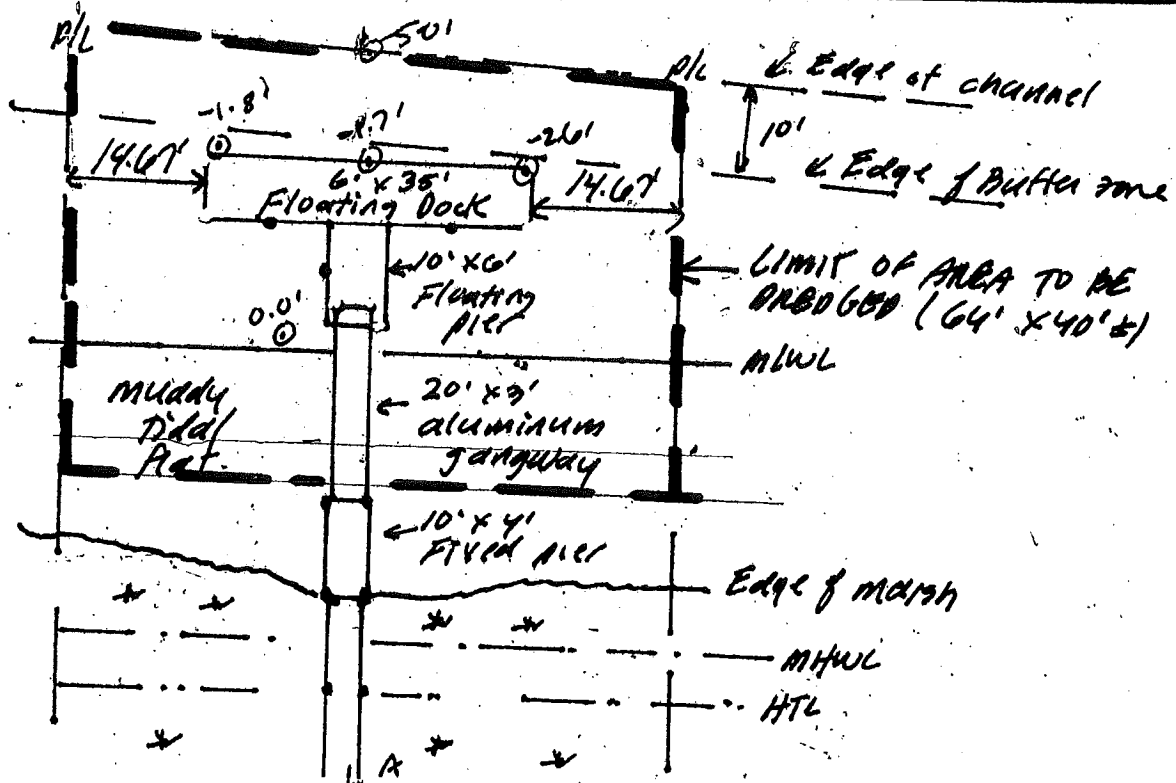 P/L
5.0'
P/L
Edge of channel
10'
-1.8'
-2.6'
14.67'
14.67'
Edge of Buffer zone
6' x 35'
Floating Dock
10' x 6'
Floating
pier
LIMIT OF AREA TO BE
DREDGED (64' x 40' ±)
0.0'
MLWL
muddy
Tidal
flat.
20' x 3'
aluminum
gangway
10' x 4'
Fixed pier
Edge of marsh
MHWL
HTL
A